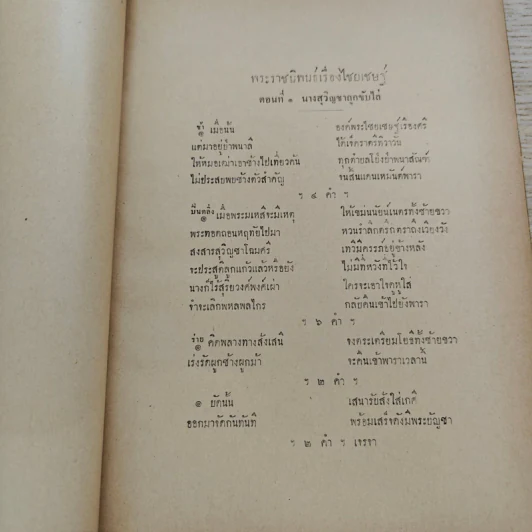 พระราชนิพนธ์เรื่องไชยเชษฐ์
ตอนที่ ๑ นางสุวิญชาถูกขับไล่
ช้า ๑ เมื่อนั้น องค์พระไชยเชษฐ์เรืองศรี
แต่มาอยู่ยังพนาลี ได้เจ็ดราตรีทิวาวัน
ให้หมอเฒ่าเอาช้างไปเที่ยวค้น ทุกตำบลโป่งป่าพนาสัณฑ์
ไม่ประสบพบช้างตัวสำคัญ จนสิ้นแดนเหมันต์พารา
ฯ ๔ คำ ฯ
ปีนตลิ่ง ๑ เมื่อพระมเหสีจะมีเหตุ ให้เขม่นนัยน์เนตรทั้งซ้ายขวา
พระทอดถอนหฤทัยไปมา หวนรำลึกตรึกตราถึงเวียงวัง
สงสารสุวิญชาโฉมศรี เทวีมีครรภ์อยู่ข้างหลัง
จะประสูติลูกแก้วแล้วหรือยัง ไม่มีที่หวังที่ไว้ใจ
นางก็ไร้สุริยวงศ์พงศ์เผ่า ใครจะเอาใจดูหูใส่
จำจะเลิกพหลพลไกร กลับคืนเข้าไปยังพารา
ฯ ๖ คำ ฯ
ร่าย ๑ คิดพลางทางสั่งเสนี จงตระเตรียมโยธีทั้งซ้ายขวา
เร่งรัดผูกช้างผูกม้า จะคืนเข้าพาราเวลานี้
ฯ ๒ คำ ฯ
๑ บัดนั้น เสนารับสั่งใส่เกศี
ออกมาจัดกันทันที พร้อมเสร็จดังมีพระบัญชา
ฯ ๒ คำ ฯ เจรจา